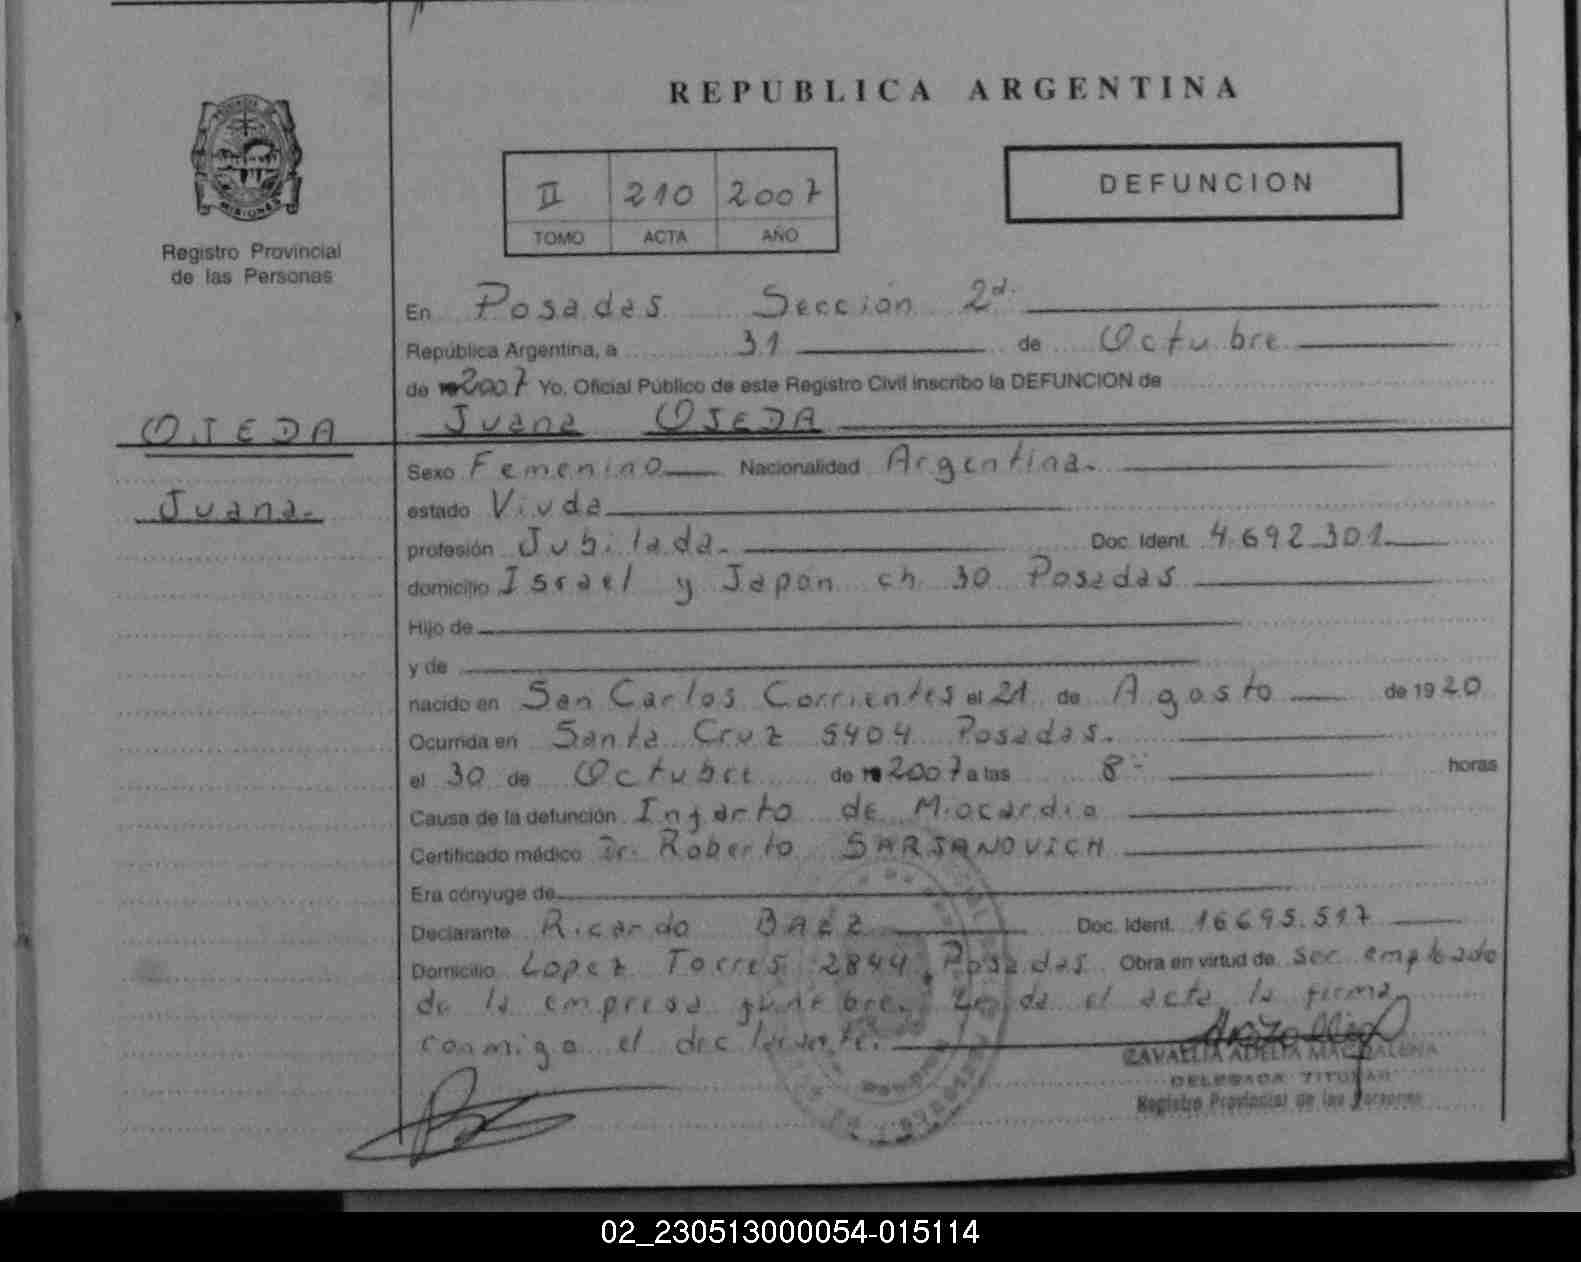 REPUBLICA ARGENTINA
MISIONES
Registro Provincial
de las Personas
II 210 2007
TOMO ACTA AÑO
DEFUNCION
En Posadas Sección 2ª
República Argentina, a 31 de Octubre
de 2007 Yo, Oficial Público de este Registro Civil inscribo la DEFUNCION de
OJEDA
Juana OJEDA
Juana.
Sexo Femenino Nacionalidad Argentina.
estado Viuda
profesión Jubilada. Doc. Ident. 4.692.301
domicilio Israel y Japón ch 30 Posadas
Hijo de
y de
nacido en San Carlos Corrientes el 21 de Agosto de 1920
Ocurrida en Santa Cruz 5404 Posadas.
el 30 de Octubre de 2007 a las 8 horas
Causa de la defunción Infarto de Miocardio
Certificado médico Dr. Roberto SARJANOVICH
Era cónyuge de
Declarante Ricardo BAEZ Doc. Ident. 16695.517
Domicilio Lopez Torres 2844, Posadas Obra en virtud de ser empleado
de la empresa funebre. Leída el acta la firma
conmigo el declarante.
ZAVALLIA ADELIA MAGDALENA
DELEGADA TITULAR
Registro Provincial de las Personas
02_230513000054-015114